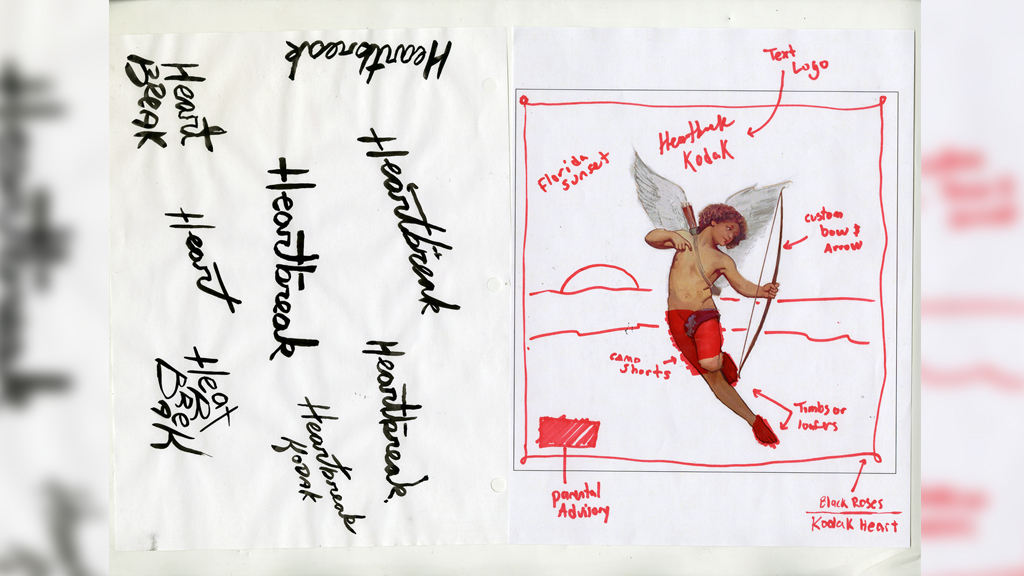 Heartbreak
Heart
BREAK
Heartbreak
Heartbreak
Heart
Heartbreak.
Heat
BREAK
Heartbreak
KODAK
Text
Logo
Heartbreak
KodaK
Florida
Sunset
custom
bow &
Arrow
camo
shorts
Timbs or
loafers
parental
Advisory
Black Roses
Kodak Heart